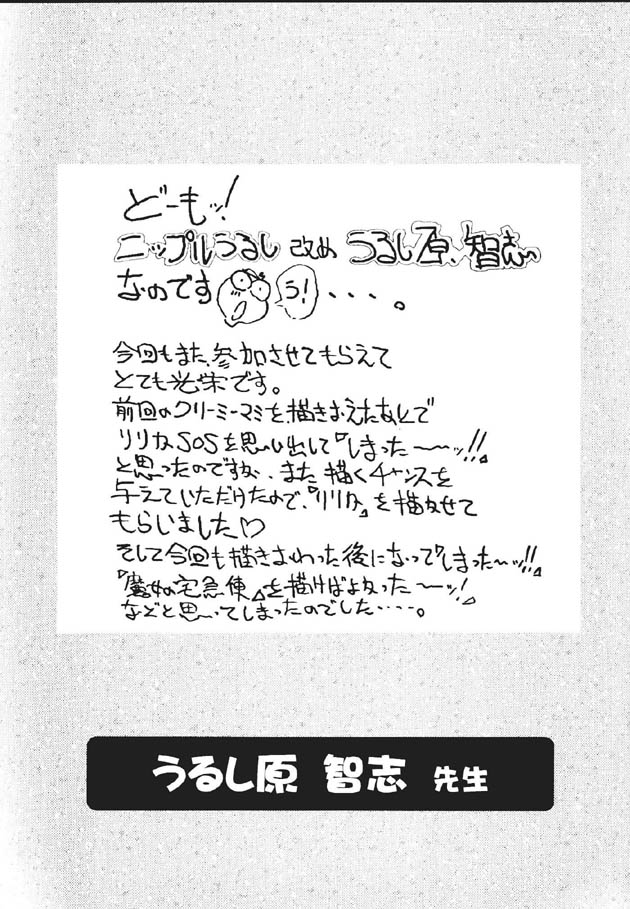 どーもッ!
ニップルうるし 改め うるし原、智志
なのです う!・・・。
今回もまた、参加させてもらえて
とても光栄です。
前回のクリーミーマミを描きおえたあとで
リリカSOSを思い出して『しまった〜〜ッ!!』
と思ったのですが、また描くチャンスを
与えていただけたので、『リリカ』を描かせて
もらいました♡
そして今回も描きおわった後になって『しまった〜ッ!!』
『魔女の宅急便』を描けばよかった〜ッ!』
などと思ってしまったのでした・・・・。
うるし原 智志 先生